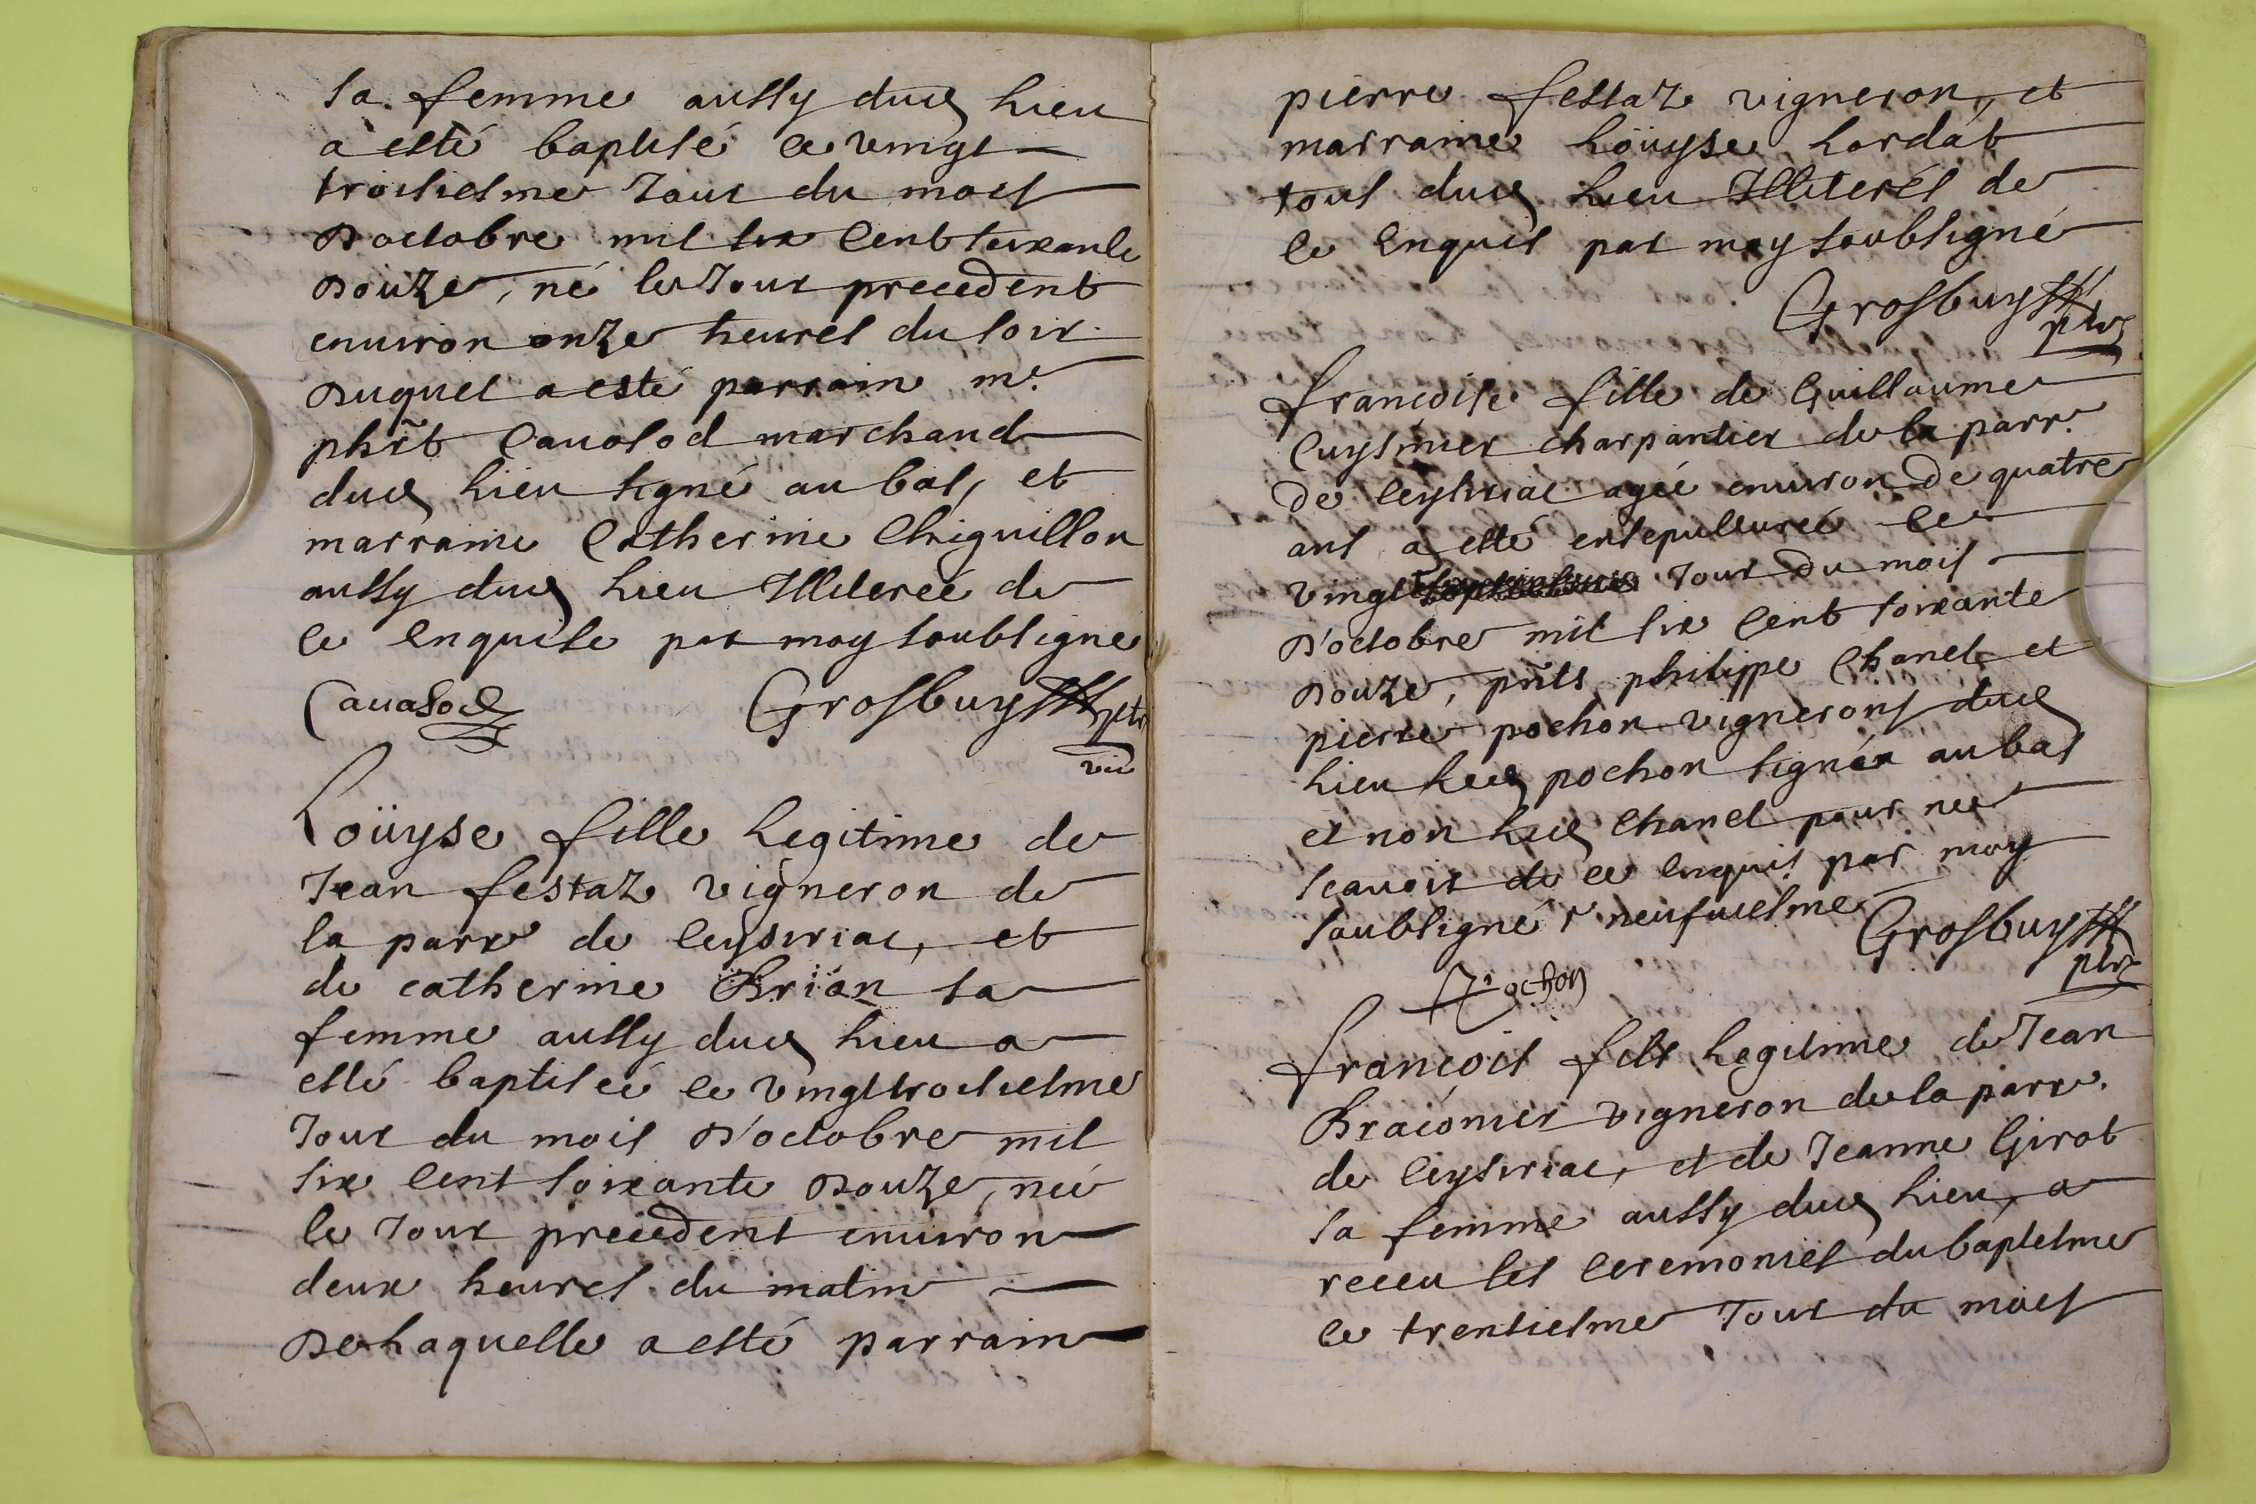 sa femme aussy dud lieu
a esté baptisé ce vingt
troisiesme Jour du mois
D'octobre mil six Cent soixante
Douze, né le Jour precedent
enuiron onze heures du soir
Duquel a esté parrain mr.
phibt Caualod marchand
dud lieu signé au bas, et
marraine Catherine Chiguillon
aussy dud lieu Illiterée de
ce Enquise par moy soubsigne
Caualod Grosbuys ptre
vic
Loüyse fille Legitime de
Jean festaz vigneron de
la parr de Ceyseriac, et
de catherine Brian sa
femme aussy dud lieu a
esté baptiseé ce vingt troisiesme
Jour du mois D'octobre mil
six Cent soixante Douze, neé
le Jour precedent enuiron
deux heures du matin
De Laquelle a esté parrain
pierre festaz vigneron, et
marraine Loüyse Lordat
tous dud lieu Illiterés de
ce Enquis par moy soubsigné
Grosbuys ptre
francoise fille de Guillaume
Cuysinier charpantier de la parr.
de Ceyseriac agée enuiron de quatre
ans a esté ensepulturée ce
vingt Jour du mois
D'octobre mil six Cent soixante
Douze, pnts philippe Chanel et
pierre pochon vignerons dud
lieu Led pochon signén au bas
et non Led Chanel pour ne
scauoir de ce Enquis par moy
soubsigné r neufuiesme
Grosbuys ptre
pochon
francois fils Legitime de Jean
Braiónier vigneron de la parr.
de Ceyseriac, et de Jeanne Girot
sa femme aussy dud lieu, a
receu les Ceremonies du baptesme
ce trentiesme Jour du mois